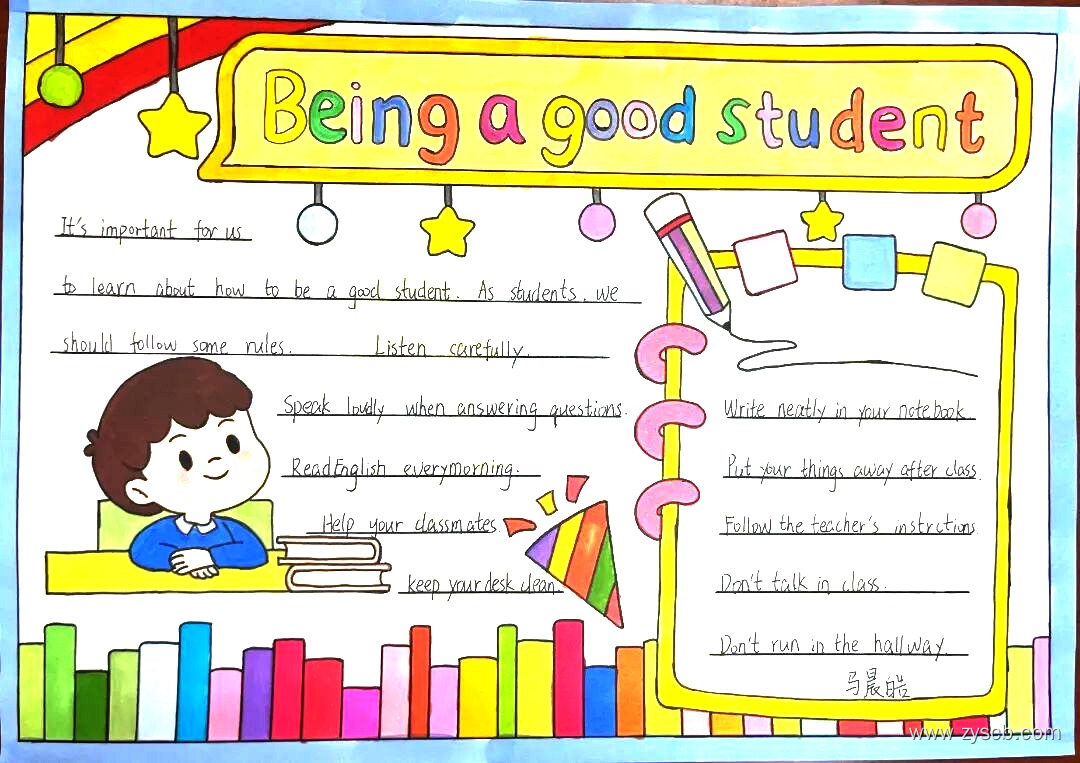 Being a good student
It's important for us
to learn about how to be a good student. As students, we
should follow some rules. Listen carefully.
Speak loudly when answering questions.
Read English everymorning.
Help your classmates.
keep your desk clean.
Write neatly in your notebook.
Put your things away after class.
Follow the teacher's instrctions
Don't talk in class.
Don't run in the hallway
马晨皓
www.zyseb.com